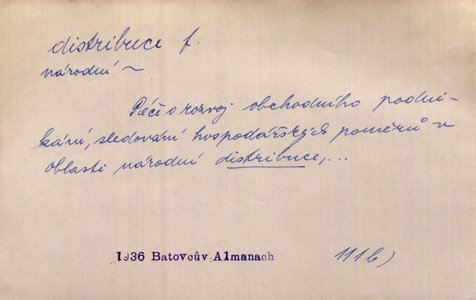 distribuce f.
národní ~
Péčí o rozvoj obchodního podni-
kání, sledování hospodářských poměrů v
oblasti národní distribuce,...
1936 Batovcův Almanach 111b)